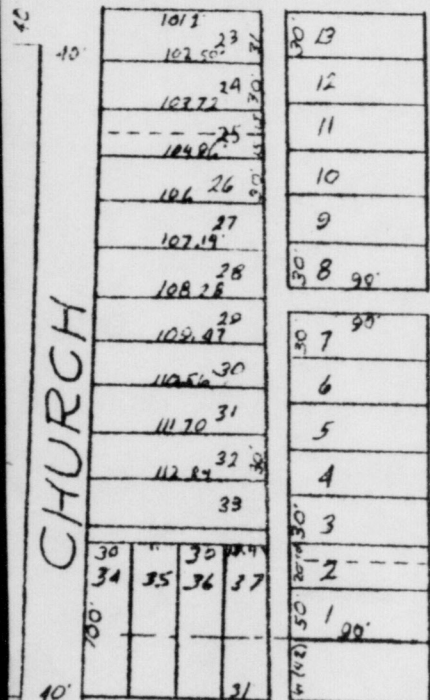 40'
40'
CHURCH
101.2
23
31
102.50
24
30'
103.72
25
104.86
26
30'
106
27
107.14
28
108.28
29
109.47
30
110.56
31
111.70
32
30'
112.84
33
30
34
35
30
36
37
100'
40'
31
30'
13
12
11
10
9
30'
8
90'
90'
30
7
6
5
4
30'
3
2
50'
1
90'